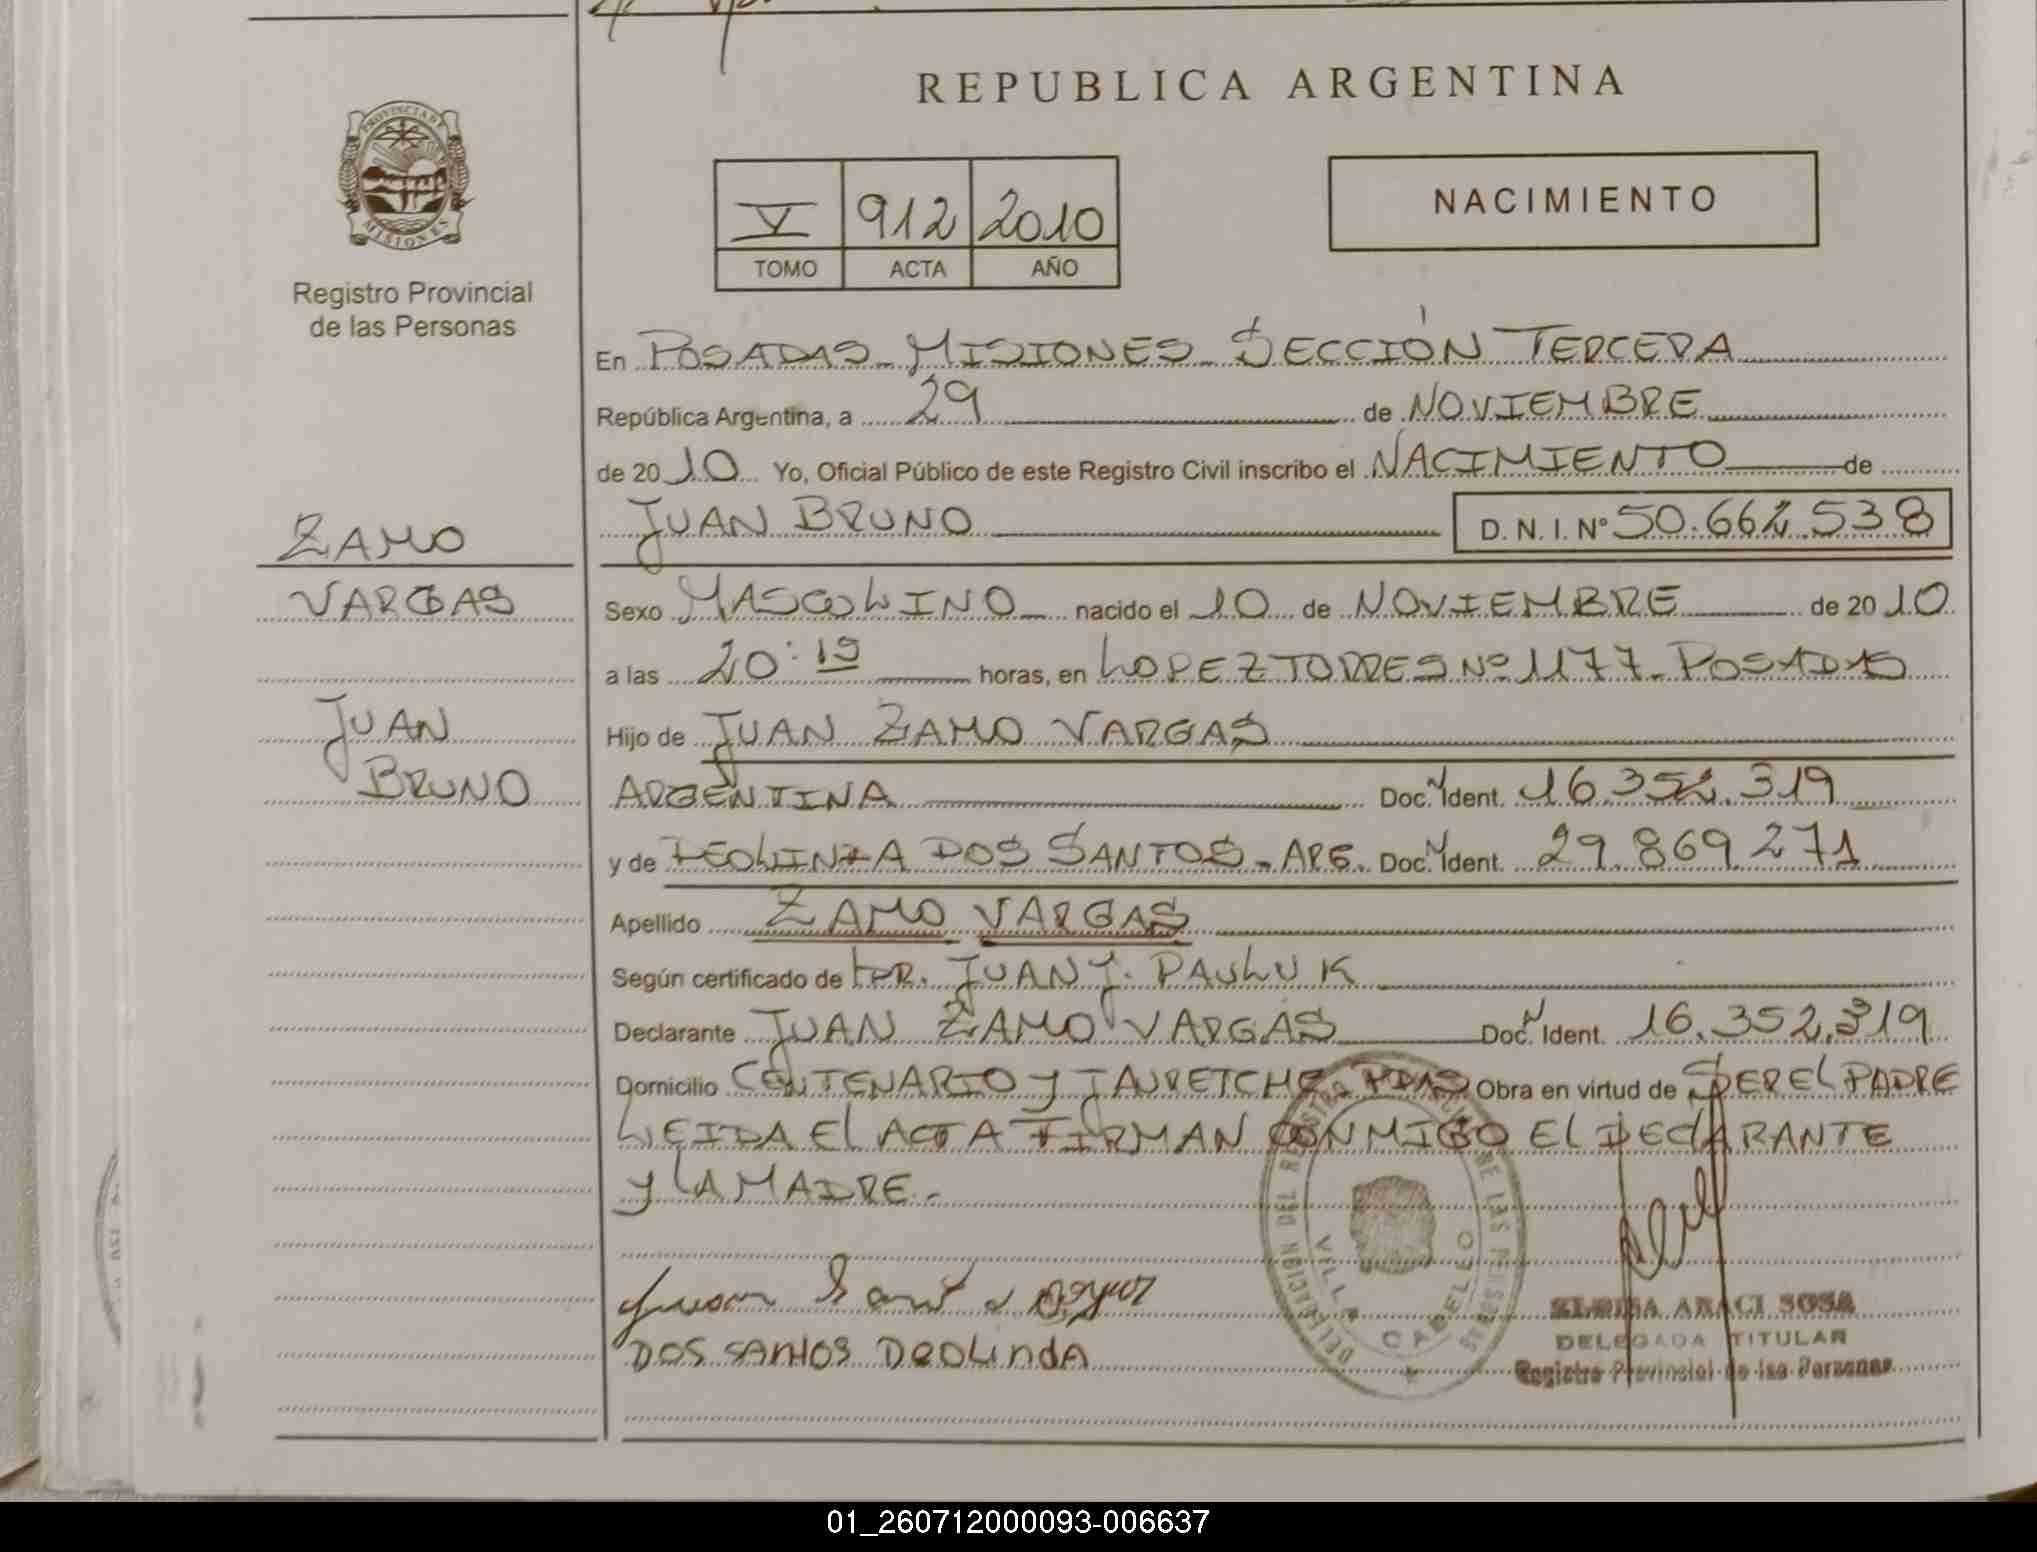 REPUBLICA ARGENTINA
PROVINCIA DE
MISIONES
Registro Provincial
de las Personas
V 912 2010
TOMO ACTA AÑO
NACIMIENTO
En POSADAS - MISIONES - SECCIÓN TERCERA
República Argentina, a 29 de NOVIEMBRE
de 2010 Yo, Oficial Público de este Registro Civil inscribo el NACIMIENTO de
JUAN BRUNO D.N.I. Nº 50.662.538
ZAMO
VARGAS
JUAN
BRUNO
Sexo MASCULINO nacido el 10 de NOVIEMBRE de 2010
a las 20:19 horas, en LOPEZ TORRES Nº 1177 - POSADAS
Hijo de JUAN ZAMO VARGAS
ARGENTINA Doc. Ident. 16.352.319
y de DEOLINDA DOS SANTOS - ARG. Doc. Ident. 29.869.271
Apellido ZAMO VARGAS
Según certificado de DR. JUAN J. PAULUK
Declarante JUAN ZAMO VARGAS Doc. Ident. 16.352.319
Domicilio CENTENARIO Y JAURETCHE PDAS Obra en virtud de SER EL PADRE
LEIDA EL ACTA FIRMAN CONMIGO EL DECLARANTE
Y LA MADRE.-
DOS SANTOS DEOLINDA
DELEGACION DEL REGISTRO PROVINCIAL DE LAS PERSONAS
VILLA CABELLO
ARACI SOSA
DELEGADA TITULAR
Registro Provincial de las Personas
01_260712000093-006637